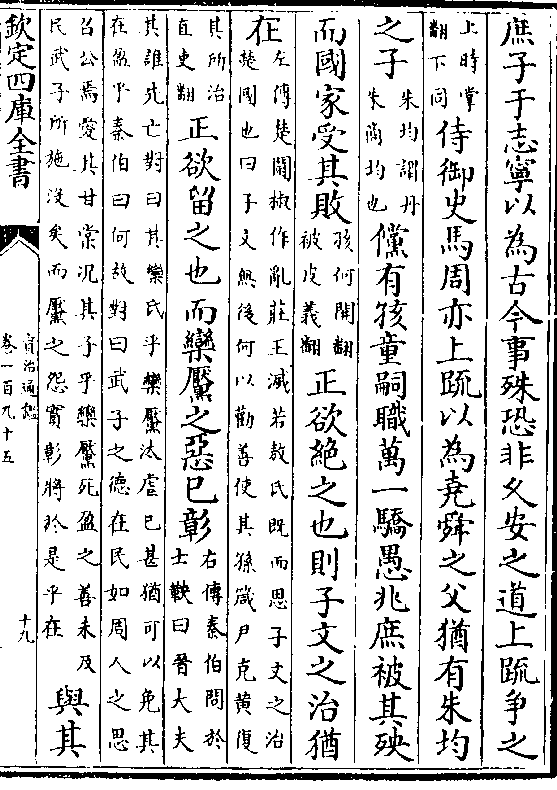 庶子于志寧以為古今事殊恐非久安之道上䟽争之
上時掌翻下同侍御史馬周亦上䟽以為堯舜之父猶有朱均
之子朱均謂丹朱商均也儻有孩童嗣職萬一驕愚兆庶被其殃
而國家受其敗孩何開翻被皮義翻正欲絶之也則子文之治猶
在左傳楚鬭椒作亂莊王滅若敖氏既而思子文之治楚國也曰子文無後何以勸善使其孫箴尹克黄復
其所治直吏翻正欲留之也而欒黶之惡已彰右傳秦伯問於士鞅曰晉大夫
其誰先亡對曰其欒氏乎欒黶汰虐已甚猶可以免其在盈乎秦伯曰何故對曰武子之德在民如周人之思
召公焉愛其甘棠況其子乎欒黶死盈之善未及民武子所施没矣而黶之怨實彰將於是乎在與其
欽定四庫全書
資治通鑑
卷一百九十五
十九